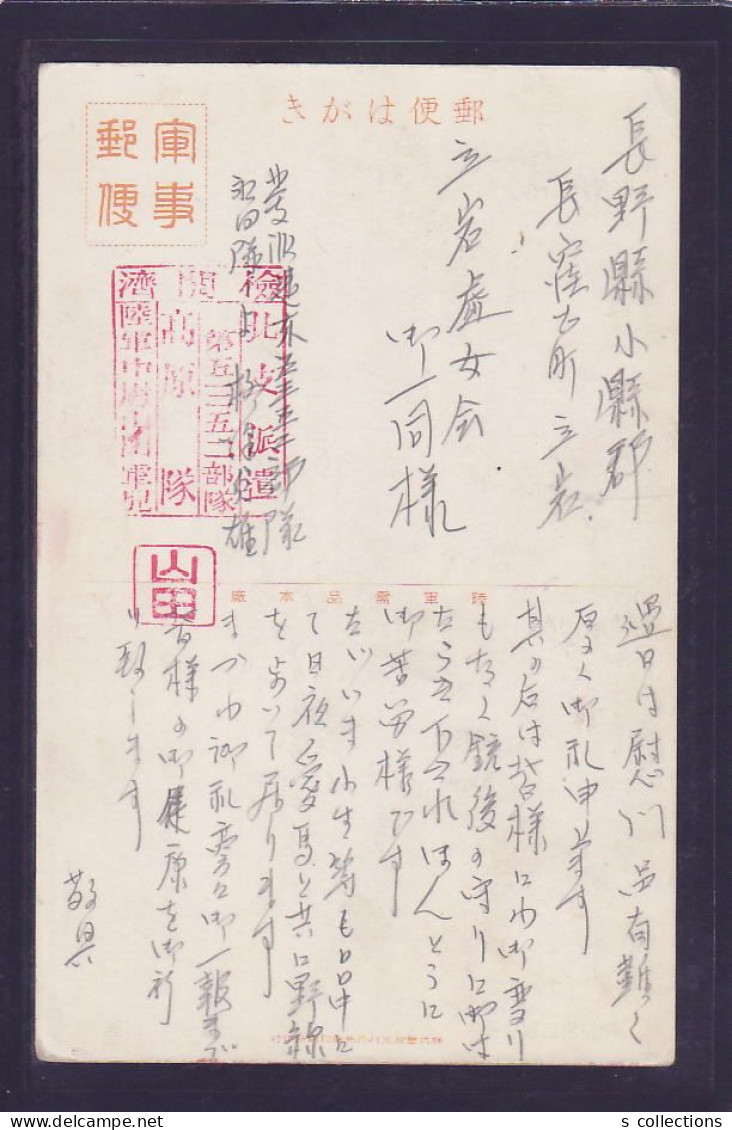 郵便はがき
軍事
郵便
長野縣小縣郡
長窪古町立岩
立岩處女会
御一同様
檢閲濟
北支派遣
第五三五二部隊
高原隊
陸軍中尉
山田
過日は慰問品有難く
厚く御礼申上ます
其の后は皆様にわ御変り
もなく銃後の守りに御は
たらき下されほんとうに
御苦労様です
小生等も日中に
て日夜愛馬と共に野線
を歩いて居ります
まづわ御礼旁に御一報まで
皆様の御健康を御祈
り致します
敬具
s collections